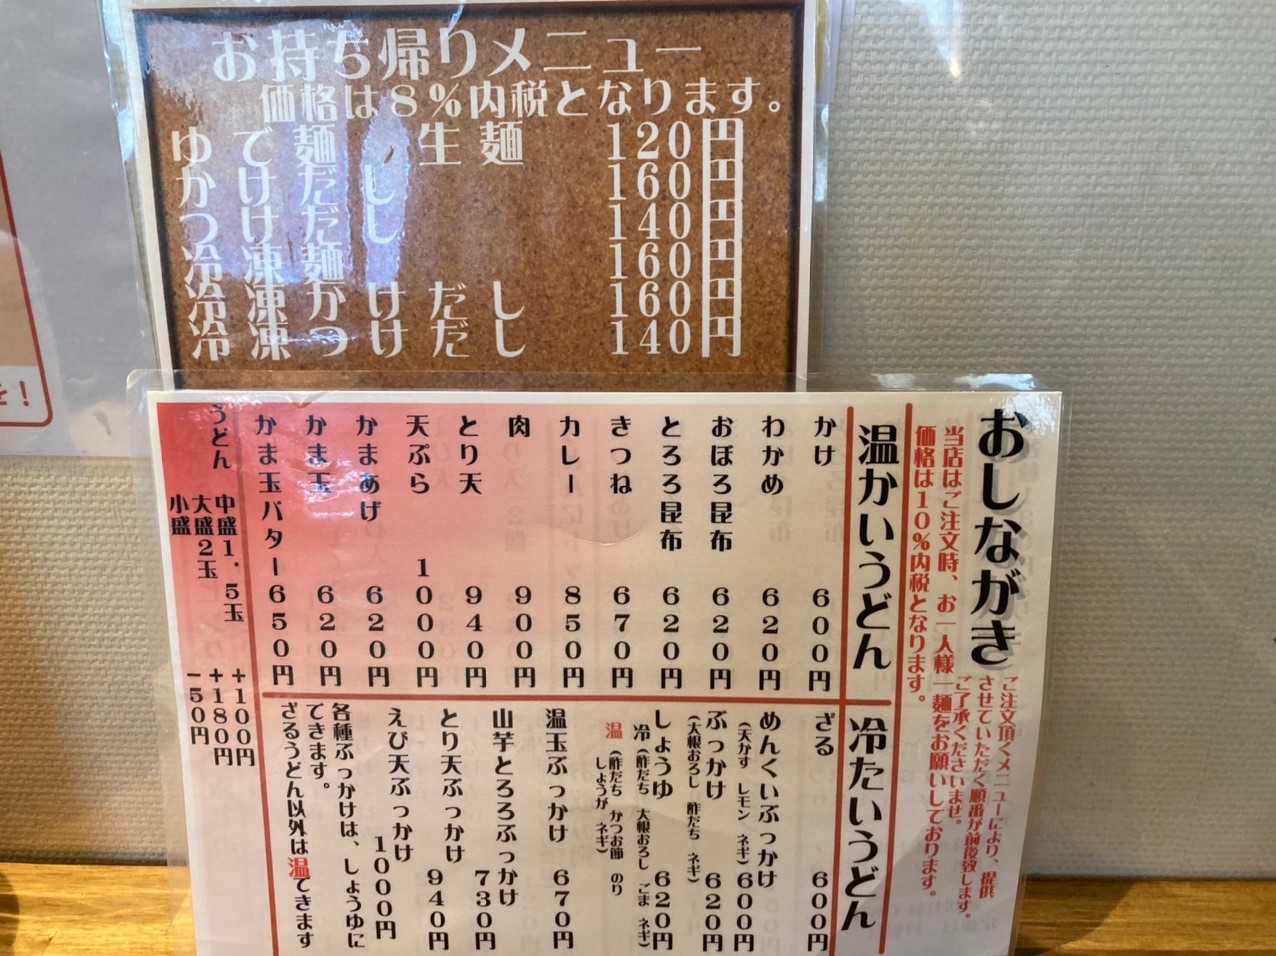 お持ち帰りメニュー
価格は8%内税となります。
ゆで麺 生麺 120円
かけだし 160円
つけだし 140円
冷凍麺 160円
冷凍かけだし 160円
冷凍つけだし 140円
を!
おしながき
当店はご注文時、お一人様一麺をお願いしております。
価格は10%内税となります。
ご注文頂くメニューにより、提供
させていただく順番が前後致します。
ご了承くださいませ。
温かいうどん
かけ 600円
わかめ 620円
おぼろ昆布 620円
とろろ昆布 620円
きつね 670円
カレー 850円
肉 900円
とり天 940円
天ぷら 1000円
かまあげ 620円
かま玉 620円
かま玉バター 650円
うどん 中盛1.5玉 +100円
大盛2玉 +180円
小盛 -50円
冷たいうどん
ざる 600円
めんくいぶっかけ 600円
(天かす レモン ネギ)
ぶっかけ 620円
(大根おろし 酢だち ネギ)
しょうゆ 620円
冷(酢だち 大根おろし ごま ネギ)
温(酢だち かつお節 のり
しょうが ネギ)
温玉ぶっかけ 670円
山芋とろろぶっかけ 730円
とり天ぶっかけ 940円
えび天ぶっかけ 1000円
各種ぶっかけは、しょうゆに
できます。
ざるうどん以外は温できます